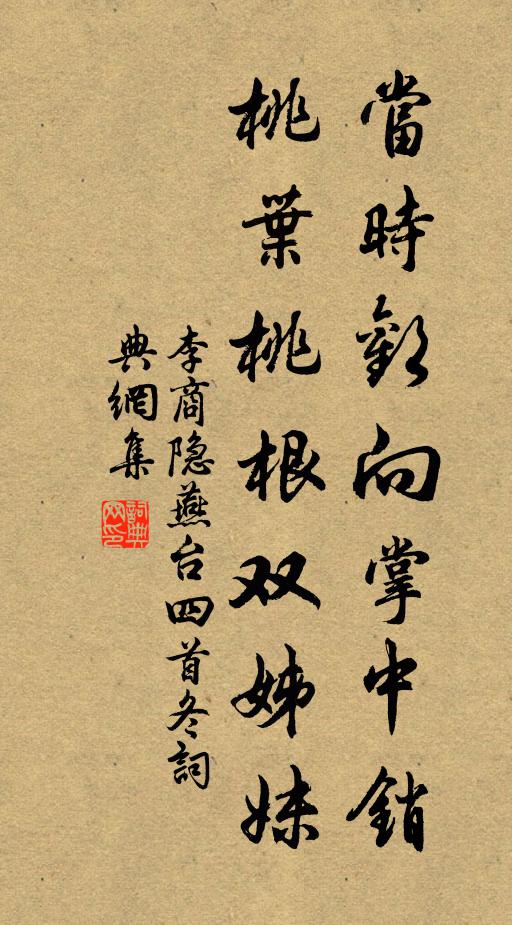 當時歡向掌中銷
桃葉桃根双姊妹
李商隐燕台四首冬詞
典網集
詞典
网印